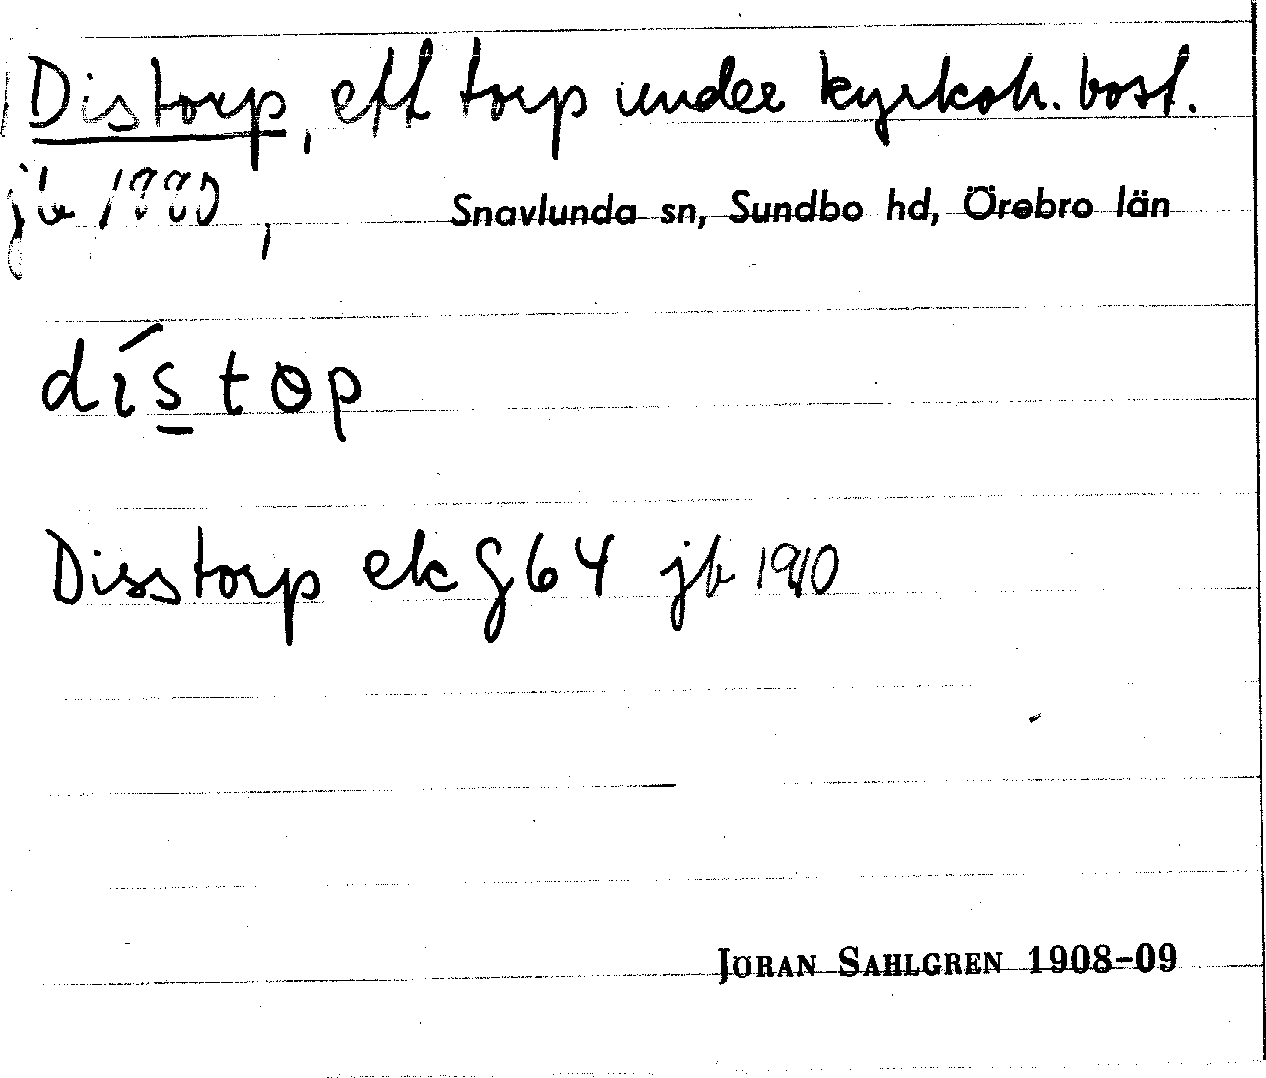 Distorp, ett torp under kyrkoh. bost.
jb 1880, Snavlunda sn, Sundbo hd, Örebro län
dís̲tɵp
Disstorp ek G64 jb 1940
JÖRAN SAHLGREN 1908–09